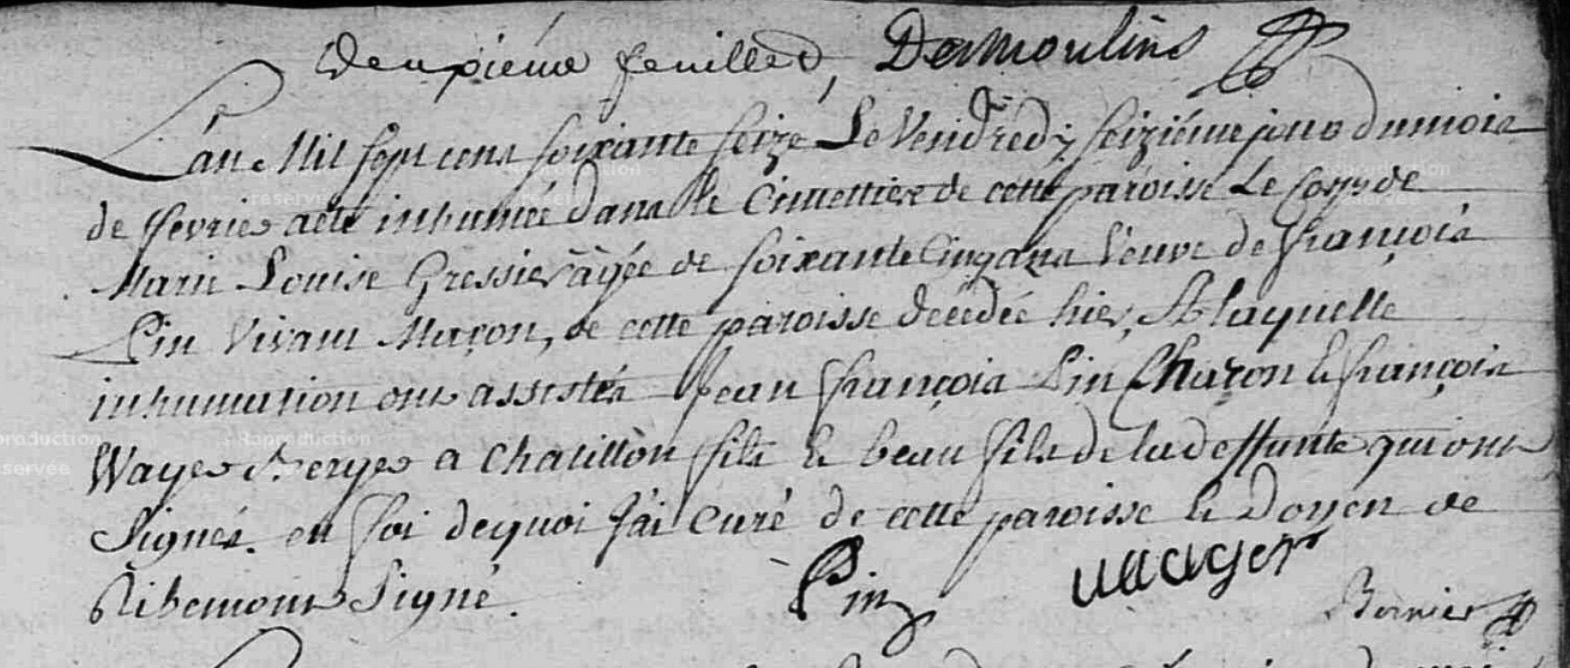 Deuxiéme feuillet, Desmoulins
L'an Mil sept cent soixante seize Le Vendredy seiziéme jour du mois
de fevrier a eté inhumée dans le Cimettiere de cette paroisse Le Corps de
Marie Louise Gressier âgée de soixante Cinq ans Veuve de françois
Pin Vivant Maçon, de cette paroisse décédée hier, A laquelle
inhumation ont assistés Jean françois Pin Charon & françois
Wager Berger a Chatillon fils & beau fils de lad deffunte qui ont
Signés. en foi dequoi J'ai Curé de cette paroisse & Doyen de
Ribemont Signé.
Pin wager Bernier